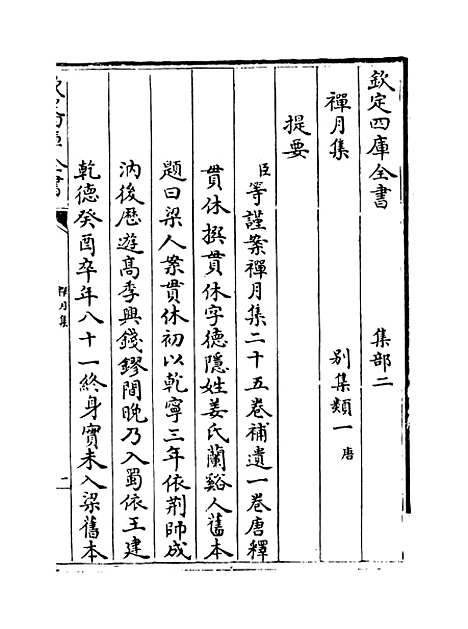 欽定四庫全書 集部二
禪月集 别集類一 唐
提要
臣等謹案禪月集二十五卷補遺一卷唐釋
貫休撰貫休字德隱姓姜氏蘭谿人舊本
題曰梁人案貫休初以乾寧三年依荆帥成
汭後歴遊髙季興錢鏐間晩乃入蜀依王建
乾德癸酉卒年八十一終身實未入梁舊本
禪月集
二